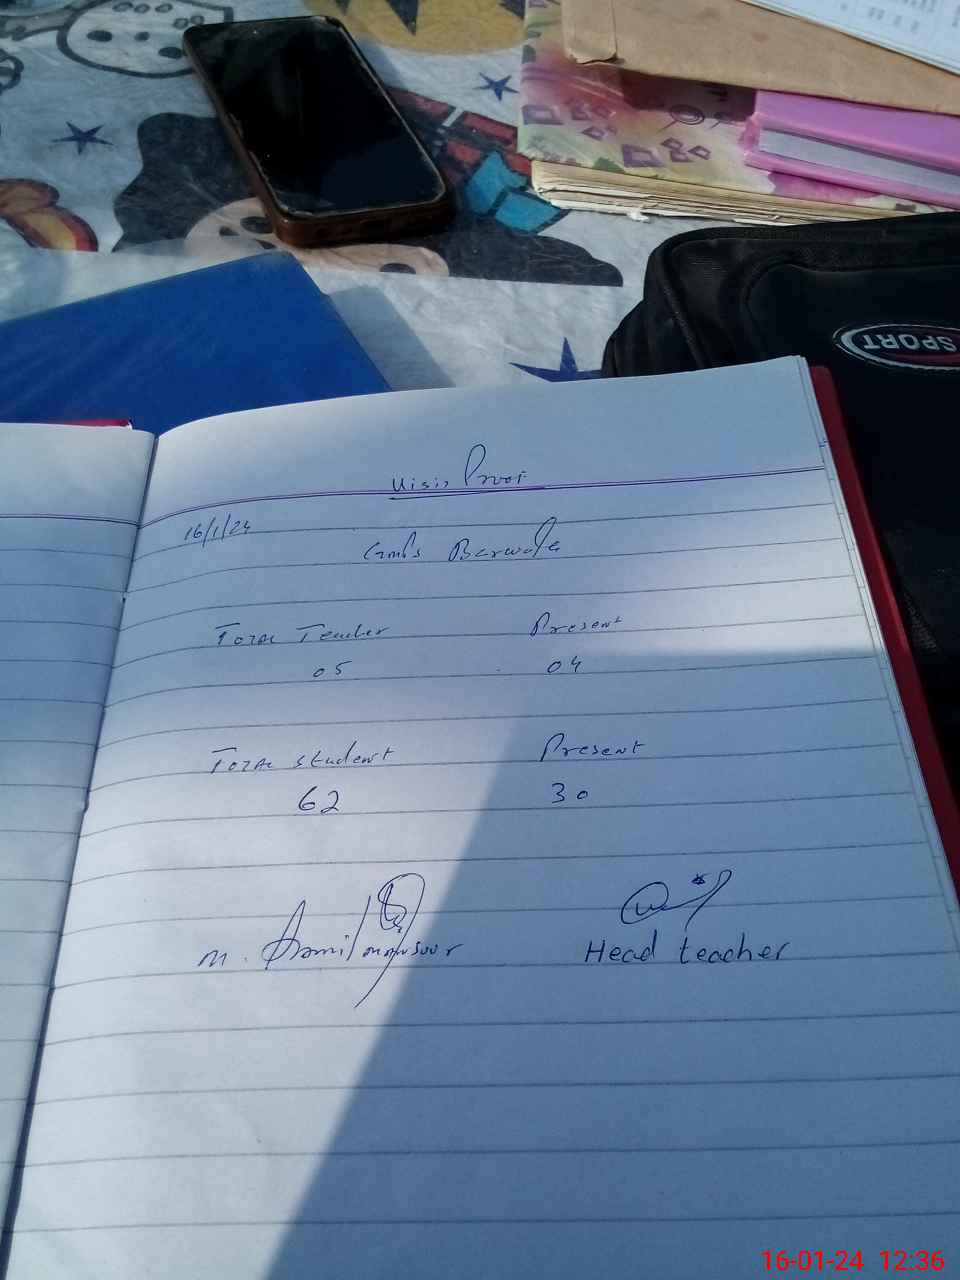 SPORT
Visit Proof
16/1/24
Gmbs Barwala
Total Teacher Present
05 04
Total student Present
62 30
M. Jamil mansoor
Head teacher
16-01-24 12:36